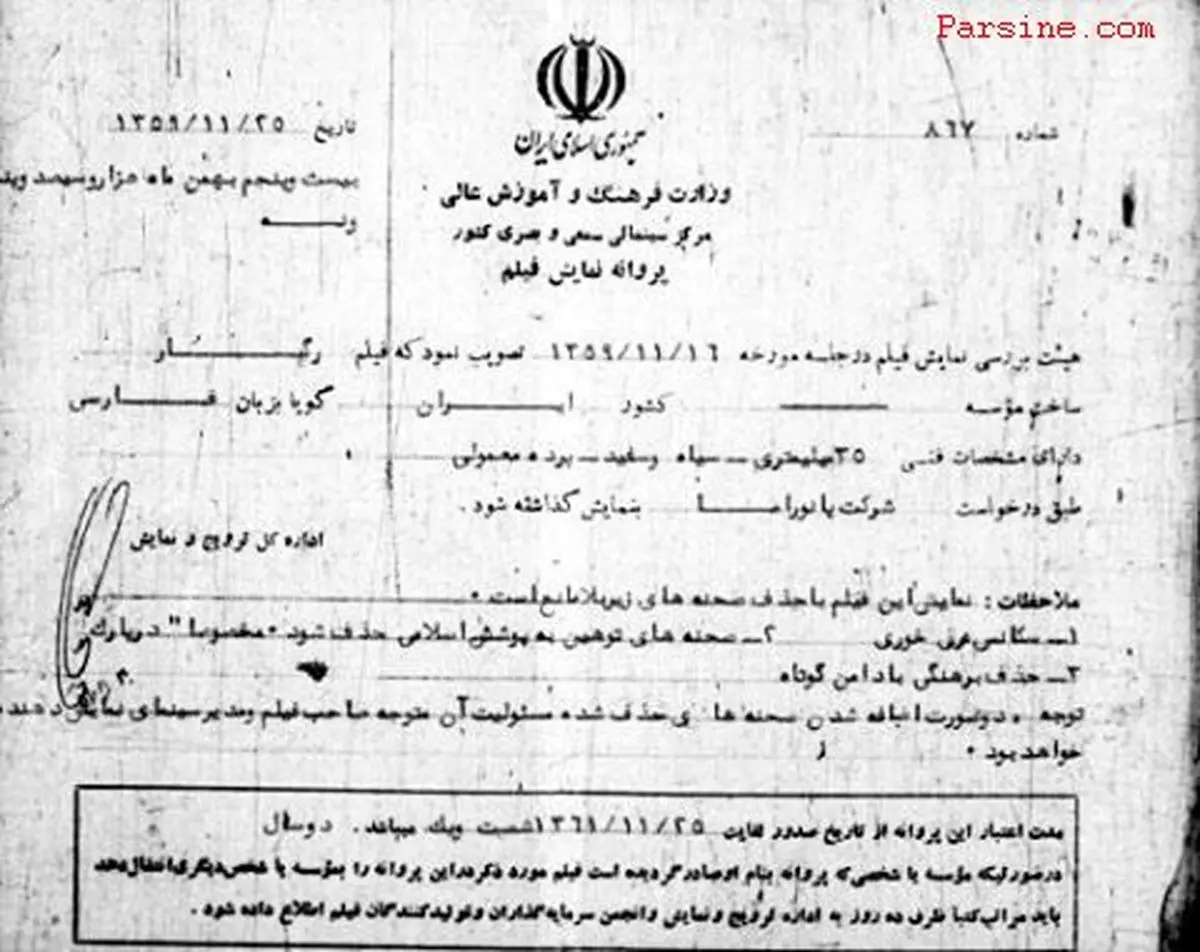 Parsine.com
جمهوری اسلامی ایران
شماره ۸۶۷
تاریخ ۱۳۵۹/۱۱/۲۵
بیست وپنجم بهمن ماه هزاروسیصد وپنجا
ونـــه
وزارت فرهنگ و آموزش عالی
مرکز سینمائی سمعی و بصری کشور
پروانه نمایش فیلم
هیئت بررسی نمایش فیلم در جلسه مورخه ۱۳۵۹/۱۱/۱۶ تصویب نمود که فیلم رگبـــار
ساخت مؤسسه ــــــ کشور ایـــران گویا بزبان فـــارسی
دارای مشخصات فنی ۳۵ میلیمتری ــ سیاه وسفید ــ پرده معمولی
طبق درخواست شرکت پانورامـــا بنمایش گذاشته شود .
اداره کل ترویج و نمایش
ملاحظات : نمایش این فیلم باحذف صحنه های زیربلامانع است .
۱ــ سکانس عرق خوری ۲ــ صحنه های توهین به پوشش اسلامی حذف شود . مخصوصا" درپارک
۳ــ حذف برهنگی بادامن کوتاه
توجه . درصورت اضافه شدن صحنه های حذف شده مسئولیت آن متوجه صاحب فیلم ومدیرسینمای نمایش دهنده
خواهد بود .
مدت اعتبار این پروانه از تاریخ صدور لغایت ۱۳۶۱/۱۱/۲۵ شصت ویک میباشد . دوسال
درصورتیکه مؤسسه یا شخصی که پروانه بنام اوصادرگردیده است فیلم مورد ذکردراین پروانه را بمؤسسه یا شخص‌دیگری‌انتقال‌دهد
باید مراتب‌کتبا ظرف ده روز به اداره ترویج ونمایش وانجمن سرمایه‌گذاران وتولیدکنندگان فیلم اطلاع داده شود .